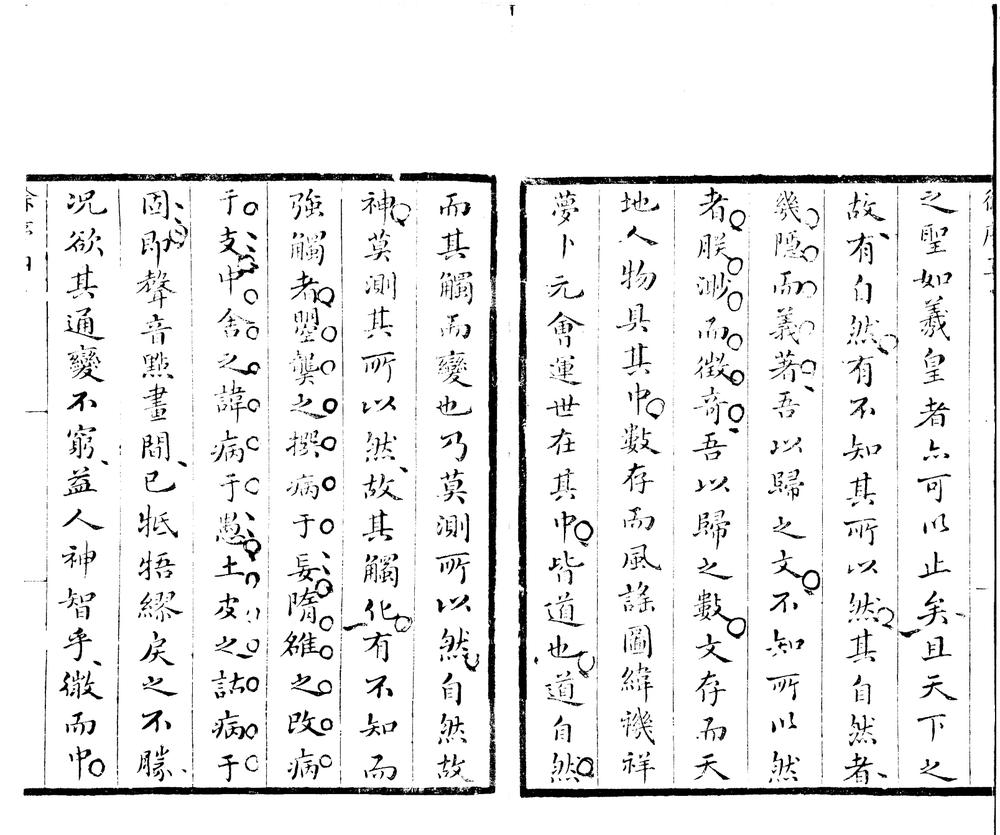 之聖如羲皇者亦可以止矣且天下之
故有自然有不知其所以然其自然者
幾隱而義著吾以歸之文不知所以然
者朕渺而徵奇吾以歸之數文存而天
地人物具其中數存而風謠圖緯禨祥
夢卜元會運世在其中皆道也道自然
而其觸而變也乃莫測所以然自然故
神莫測其所以然故其觸化有不知而
強觸者曌龑之撰病于妄隋雒之改病
于支中舍之諱病于愚土皮之詁病于
固即聲音點畫間已牴牾繆戾之不勝
況欲其通變不窮益人神智乎微而中